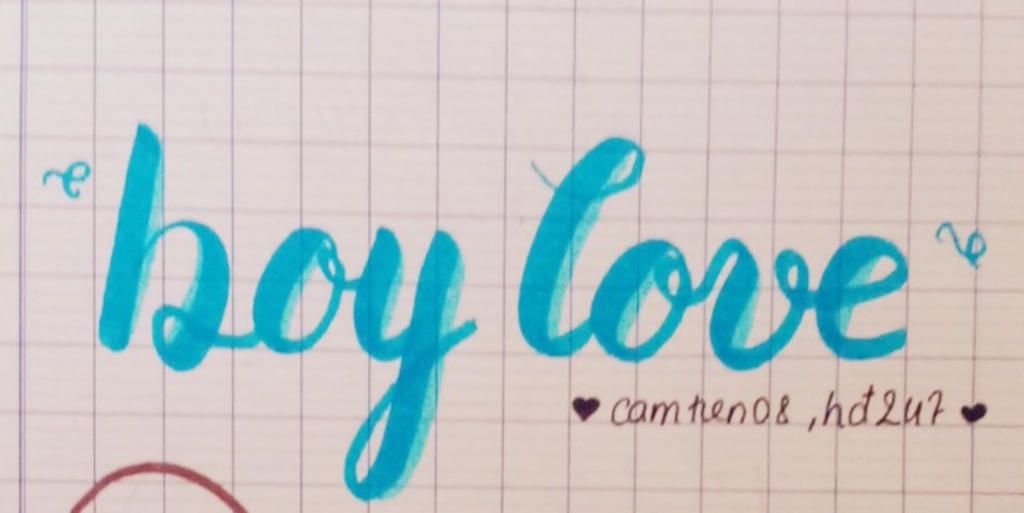 boy love
♥ camtien08, hđ247 ♥